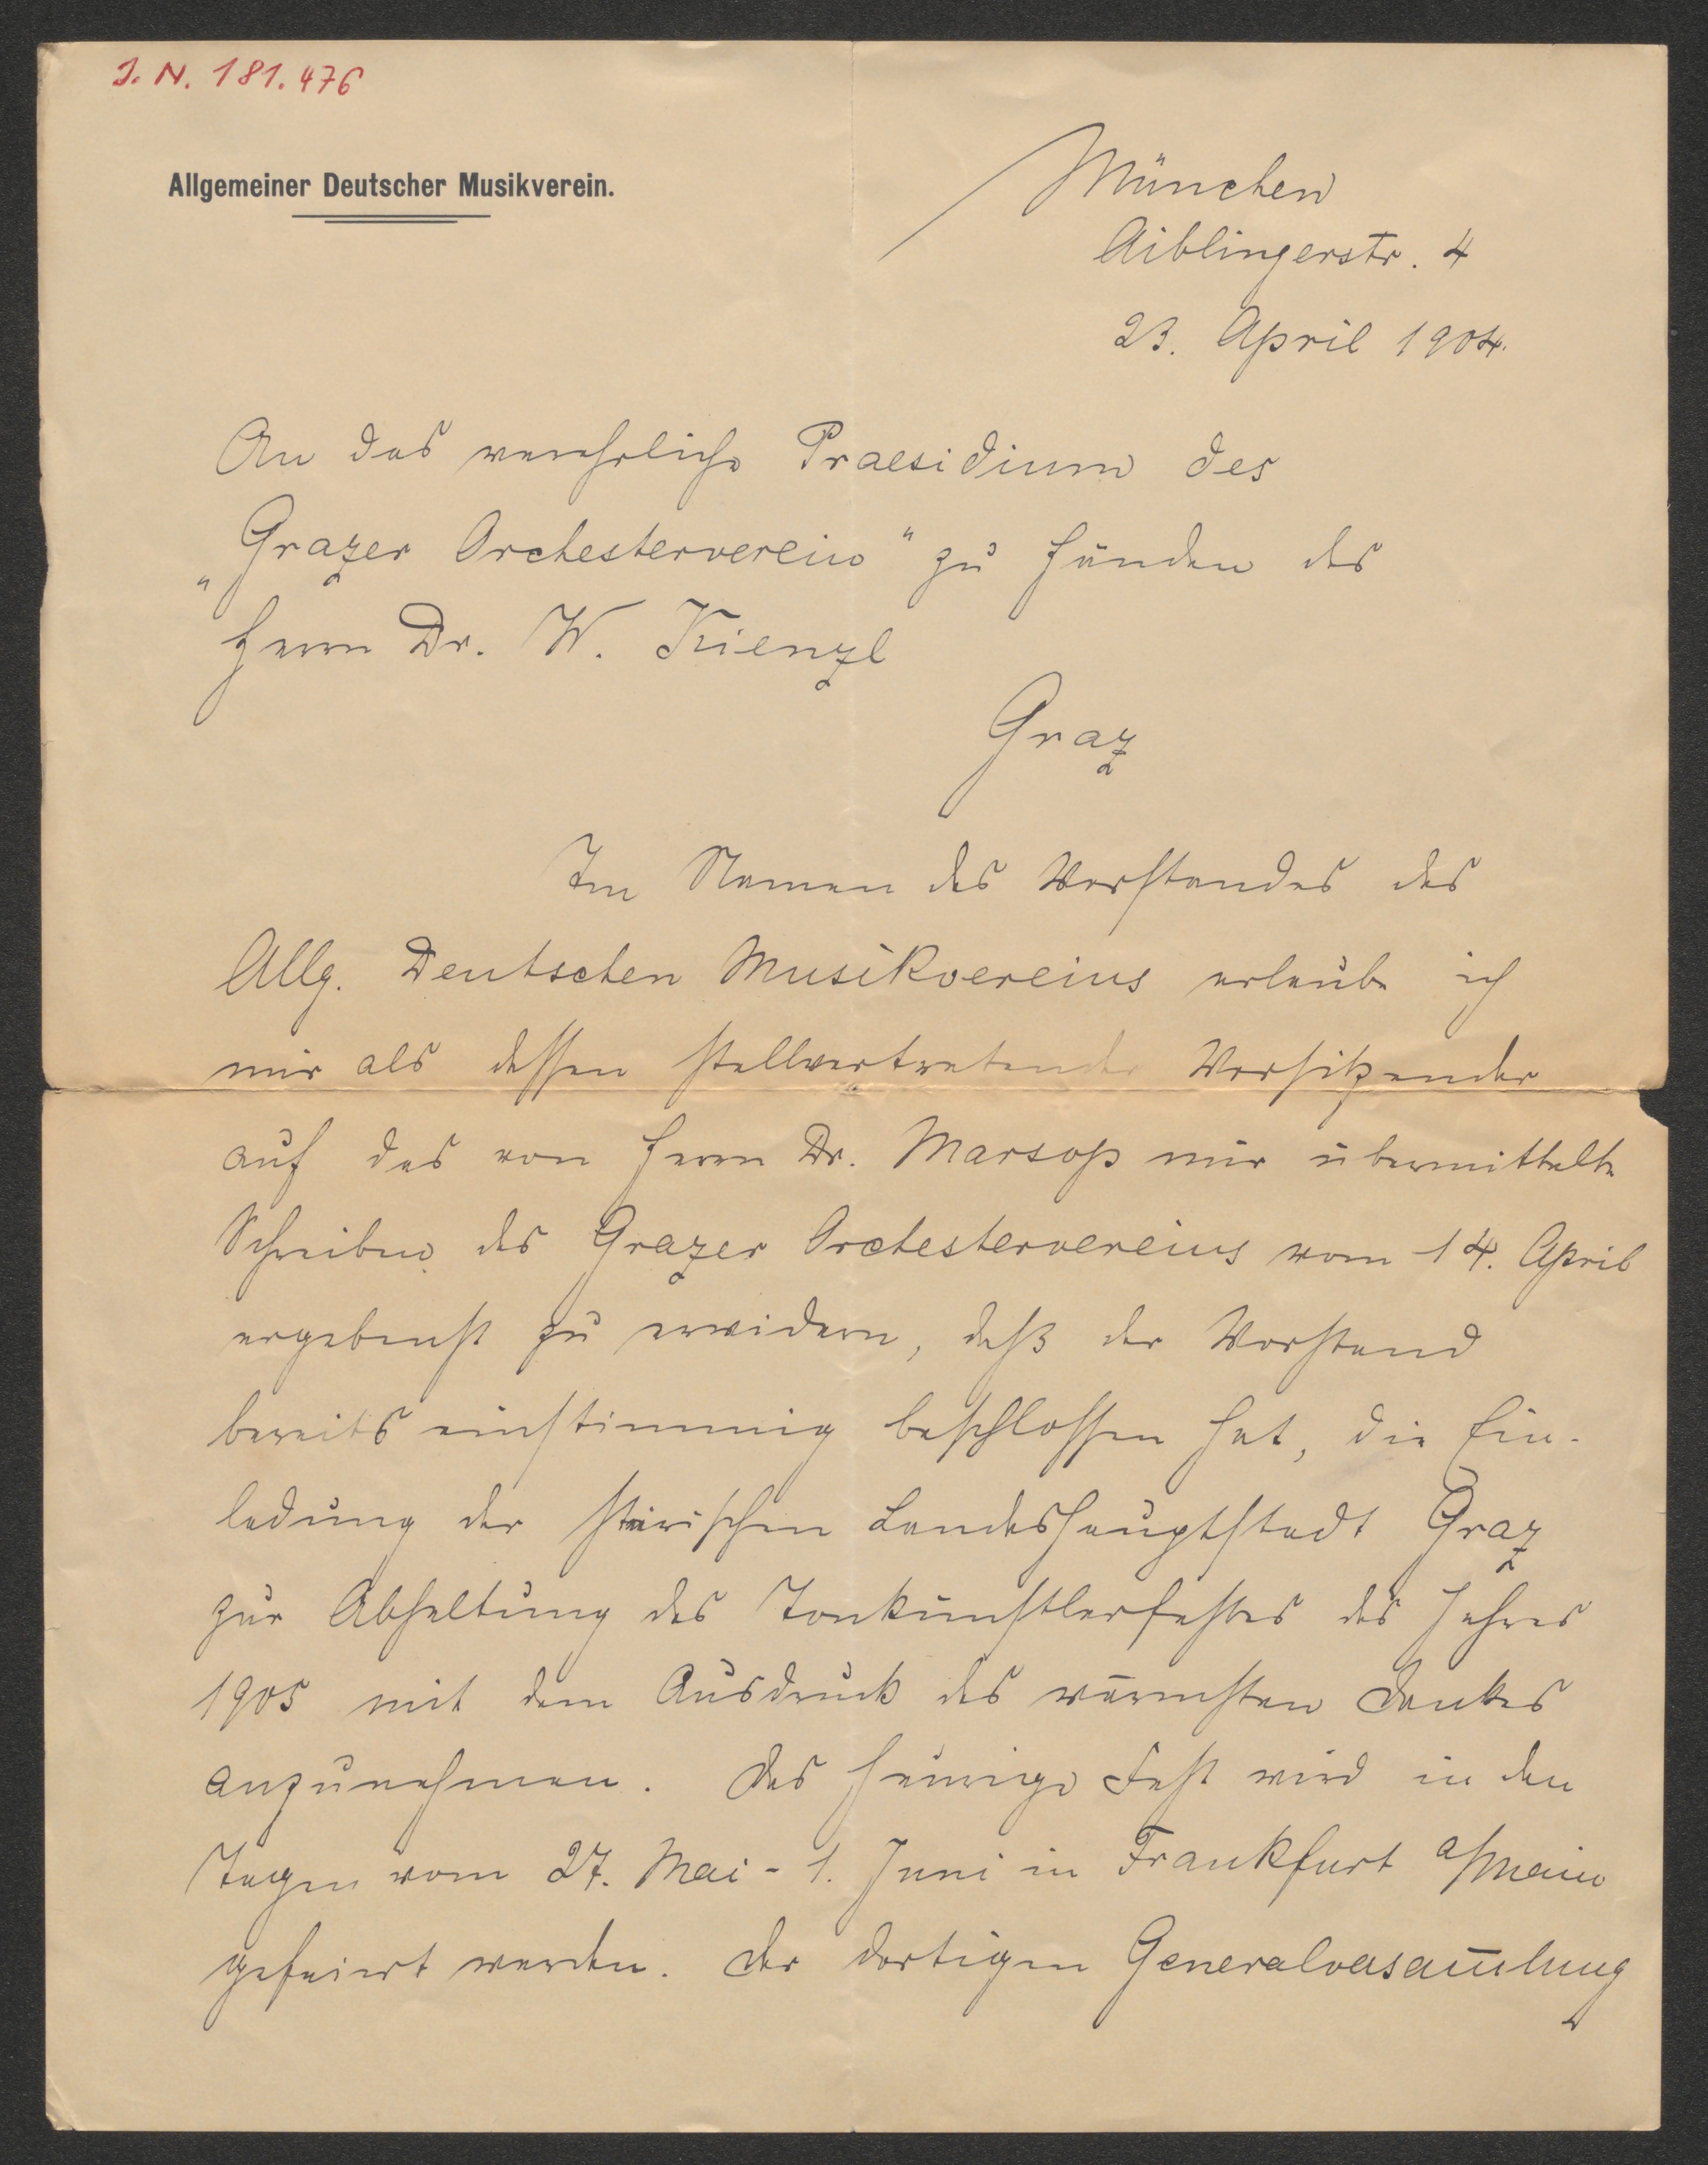 J. N. 181.476
Allgemeiner Deutscher Musikverein.
München
Aiblingerstr. 4
23. April 1904.
An das verehrliche Praesidium des
„Grazer Orchesterverein" zu Händen des
Herrn Dr. W. Kienzl
Graz
Im Namen des Vorstandes des
Allg. Deutschen Musikvereins erlaube ich
mir als dessen stellvertretender Vorsitzender
auf das von Herrn Dr. Marsop mir übermittelte
Schreiben des Grazer Orchestervereins vom 14. April
ergebenst zu erwidern, daß der Vorstand
bereits einstimmig beschlossen hat, die Ein-
ladung der steirischen Landeshauptstadt Graz
zur Abhaltung des Tonkünstlerfestes des Jahres
1905 mit dem Ausdruck des wärmsten Dankes
anzunehmen. Das heurige Fest wird in den
Tagen vom 27. Mai - 1. Juni in Frankfurt a/Main
gefeiert werden. Der dortigen Generalversam̅lung